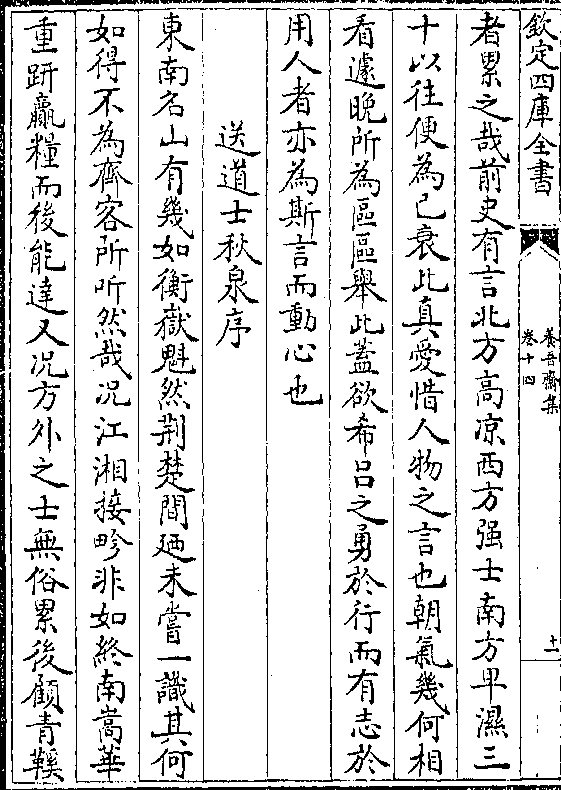 欽定四庫全書
養吾齋集
卷十四
十一
者累之哉前史有言北方高凉西方强士南方卑濕三
十以往便為己衰此真愛惜人物之言也朝氣幾何相
看遽晚所為區區舉此蓋欲希吕之勇於行而有志於
用人者亦為斯言而動心也
送道士秋泉序
東南名山有幾如衡嶽魁然荆楚間廼未嘗一識其何
如得不為齊客所听然哉况江湘接畛非如終南嵩華
重趼贏糧而後能達又况方外之士無俗累後顧青鞵